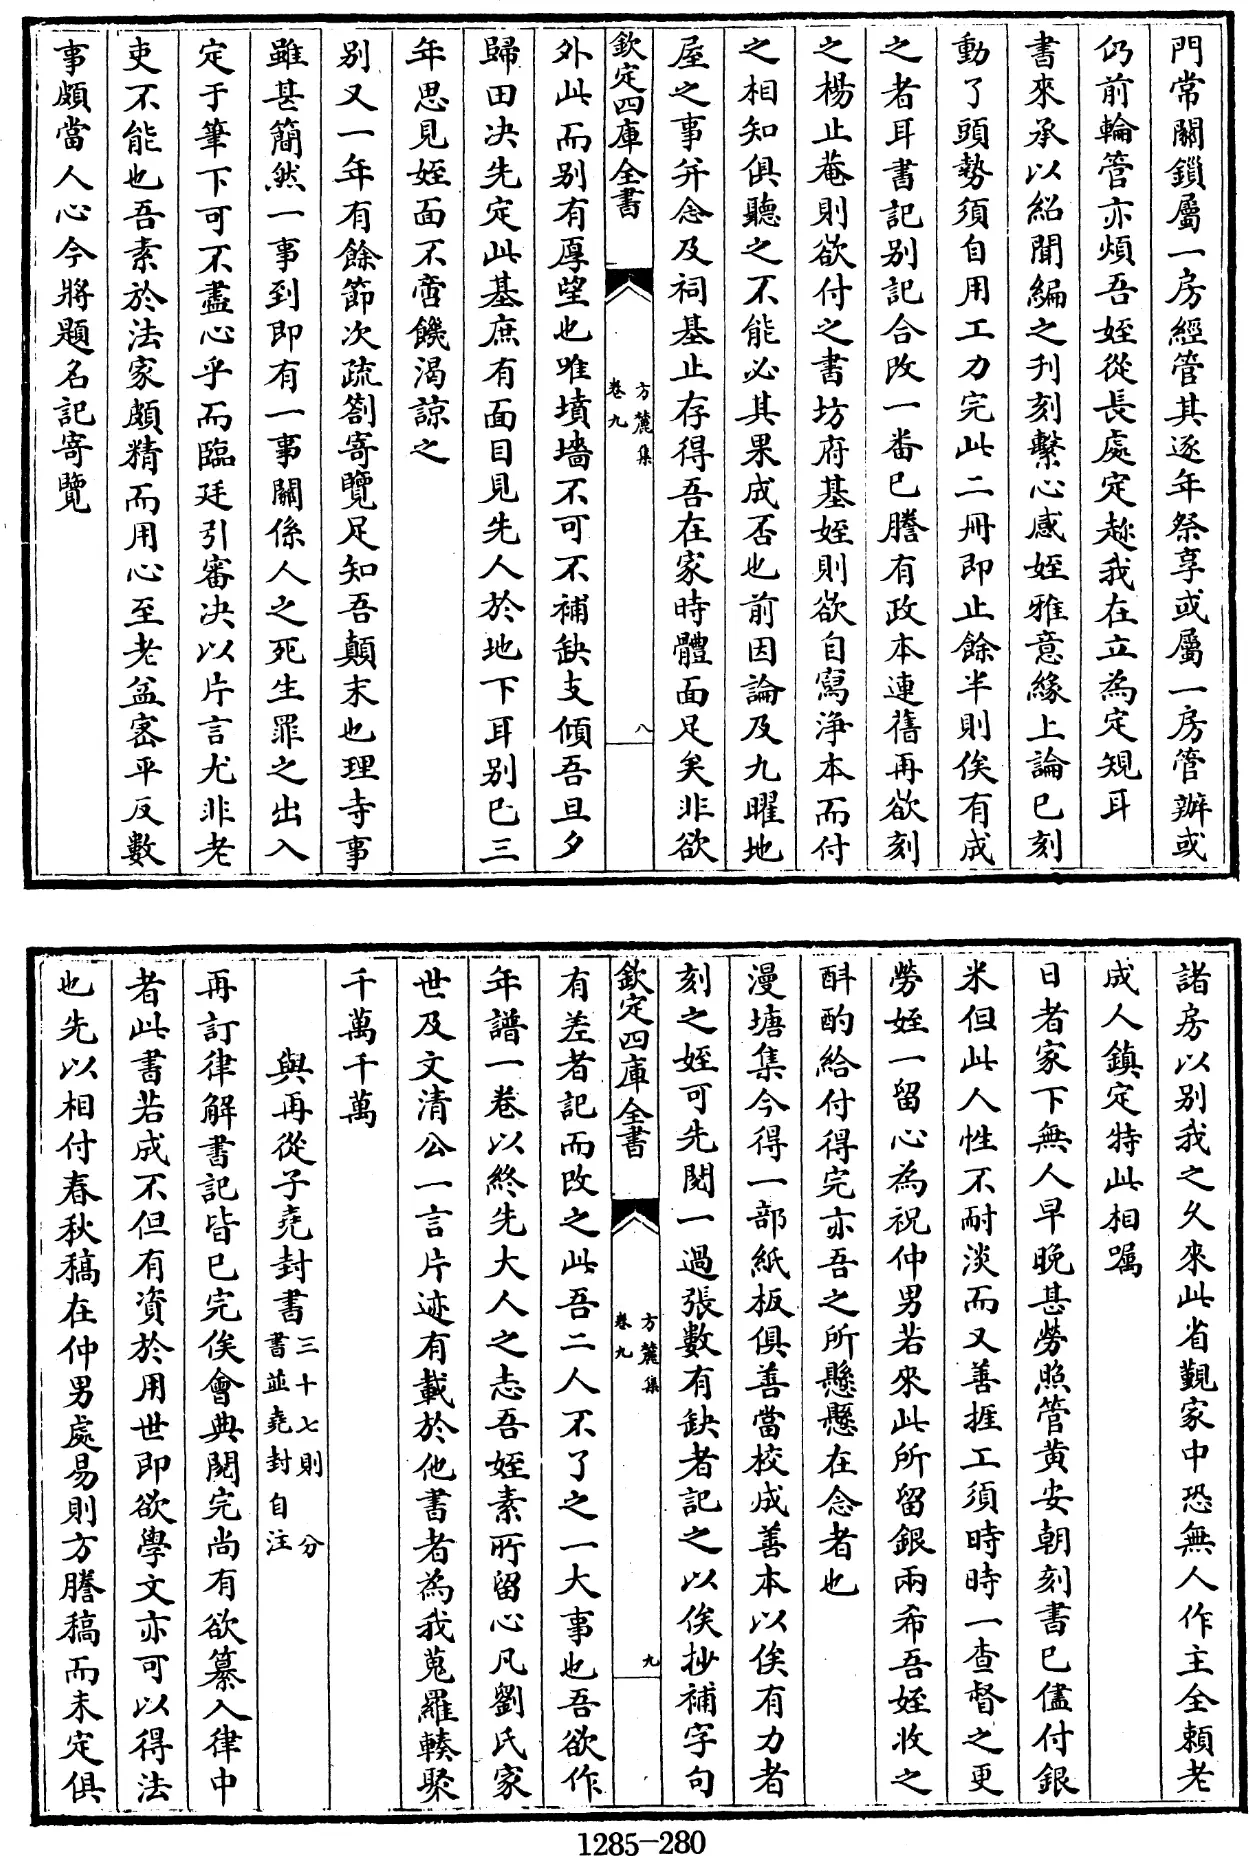 門常關鎖屬一房經管其逐年祭享或屬一房管辦或
仍前輪管亦煩吾姪從長處定趂我在立為定規耳
書來承以紹聞編之刋刻繫心感姪雅意緣上論已刻
動了頭勢須自用工力完此二冊即止餘半則俟有成
之者耳書記别記合改一畨已謄有政本連舊再欲刻
之楊止菴則欲付之書坊府基姪則欲自寫淨本而付
之相知俱聽之不能必其果成否也前因論及九曜地
屋之事并念及祠基止存得吾在家時體面足矣非欲
欽定四庫全書
方麓集
卷九
八
外此而别有厚望也唯墳墻不可不補缺支傾吾旦夕
歸田决先定此基庶有面目見先人於地下耳别已三
年思見姪面不啻饑渴諒之
别又一年有餘節次疏劄寄覽足知吾顛末也理寺事
雖甚簡然一事到即有一事關係人之死生罪之出入
定于筆下可不盡心乎而臨廷引審决以片言尤非老
吏不能也吾素於法家頗精而用心至老益宻平反數
事頗當人心今將題名記寄覽
諸房以别我之久來此省覲家中恐無人作主全賴老
成人鎮定特此相囑
日者家下無人早晩甚勞照管黄安朝刻書已儘付銀
米但此人性不耐淡而又善捱工須時時一查督之更
勞姪一留心為祝仲男若來此所留銀兩希吾姪收之
斟酌給付得完亦吾之所懸懸在念者也
漫塘集今得一部紙板俱善當校成善本以俟有力者
刻之姪可先閲一過張數有缺者記之以俟抄補字句
欽定四庫全書
方麓集
卷九
九
有差者記而改之此吾二人不了之一大事也吾欲作
年譜一卷以終先大人之志吾姪素所留心凡劉氏家
世及文清公一言片迹有載於他書者為我蒐羅輳聚
千萬千萬
與再從子堯封書三十七則 分
書並堯封自注
再訂律解書記皆已完俟會典閲完尚有欲纂入律中
者此書若成不但有資於用世即欲學文亦可以得法
也先以相付春秋稿在仲男處易則方謄稿而未定俱
1285-280